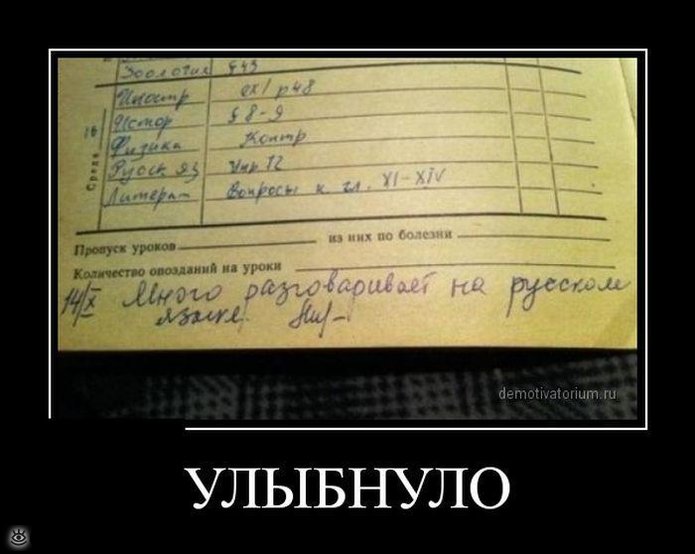 Зоология §43
Иностр ex1 p48
Истор § 8-9
16
Физика Контр
Среда
Русск яз Упр 12
Литерат Вопросы к гл. XI-XIV
Пропуск уроков из них по болезни
Количество опозданий на уроки
14/X Много разговаривает на русском
языке.
demotivatorium.ru
УЛЫБНУЛО